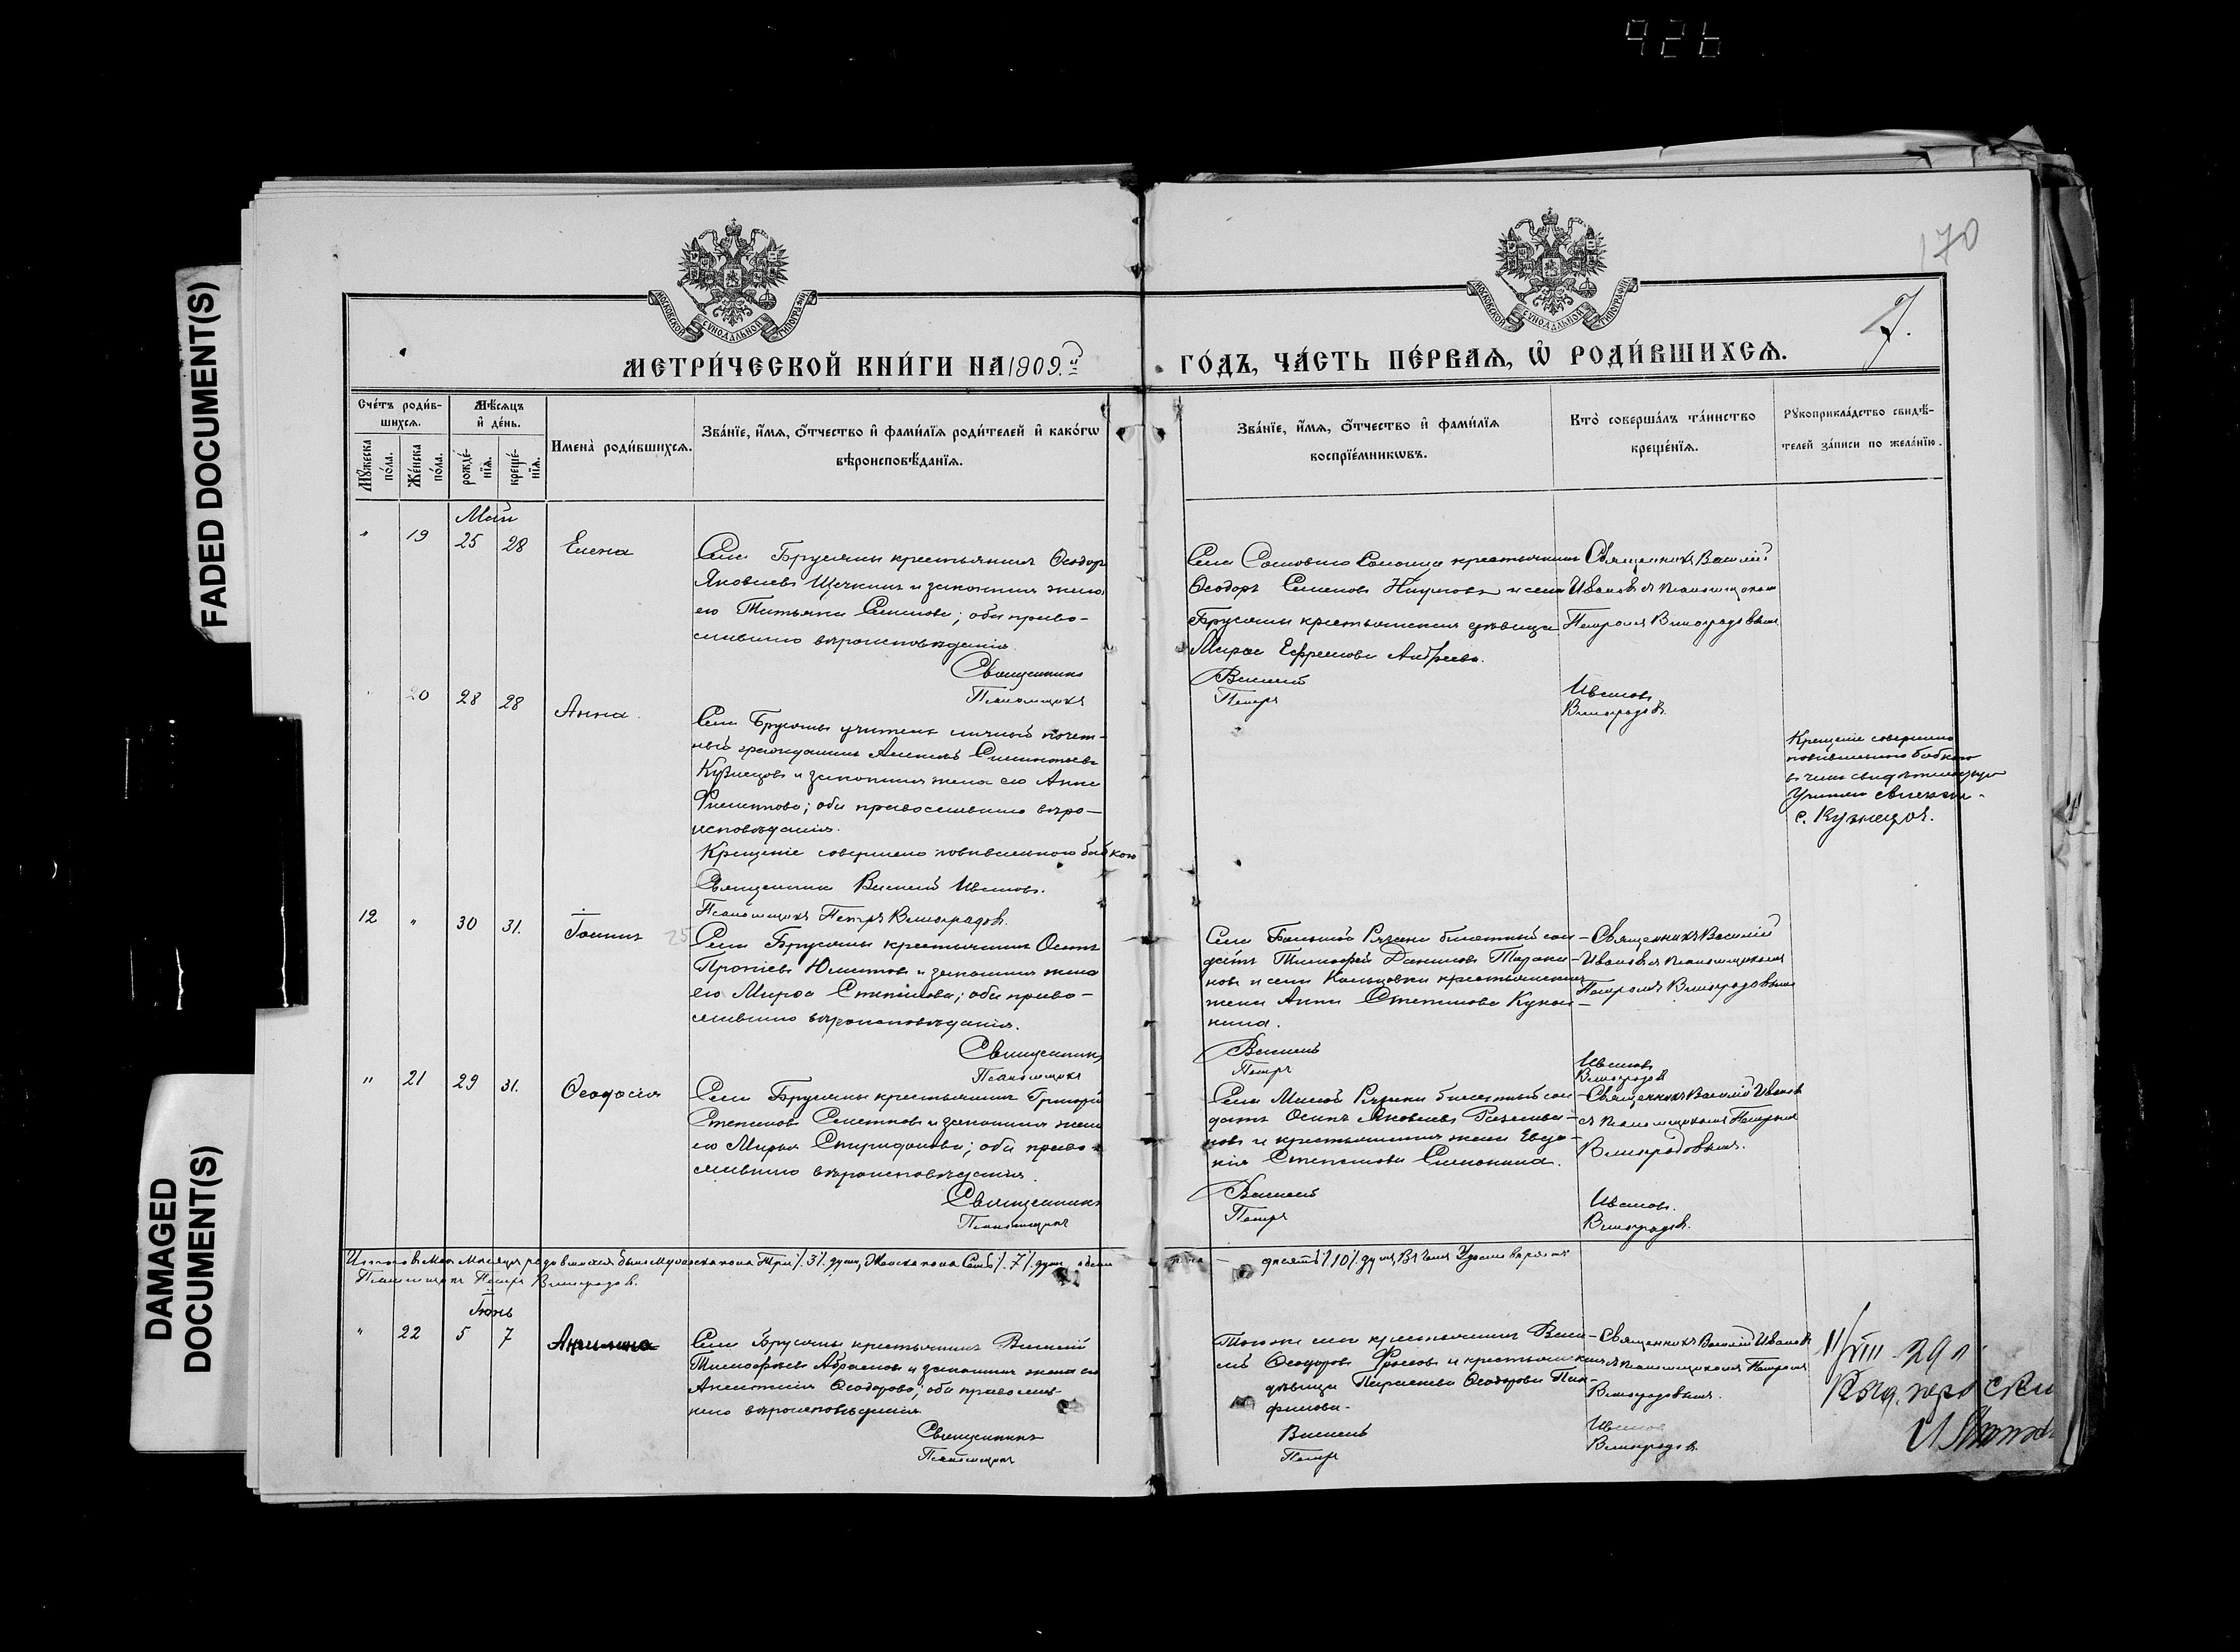 926
FADED DOCUMENT(S)
DAMAGED
DOCUMENT(S)
170
7.
МОСКОВСКОЙ СУНОДАЛЬНОЙ ТИПОГРАФІИ
МОСКОВСКОЙ СУНОДАЛЬНОЙ ТИПОГРАФІИ
МЕТРИ́ЧЕСКОЙ КНИ́ГИ НА 1909.й
ГО́ДЪ, ЧА́СТЬ ПЕ́РВАѦ, Ѡ҆ РОДИ́ВШИХСѦ.
Сче́тъ роди́в-
шихсѧ.
Мꙋ́жеска
по́ла.
Же́нска
по́ла.
Мѣ́сѧцъ
и҆ де́нь.
рожде́-
нїѧ.
креще́-
нїѧ.
Имена̀ роди́вшихсѧ.
Зва́нїе, и҆́мѧ, ѻ҆́тчество и҆ фами́лїѧ роди́телей и҆ како́гѡ
вѣроисповѣ́данїѧ.
Зва́нїе, и҆́мѧ, ѻ҆́тчество и҆ фами́лїѧ
воспрїе́мникѡвъ.
Кто̀ соверша́лъ та́инство
креще́нїѧ.
Рꙋкоприкла́дство свидѣ́-
телей за́писи по жела́нїю.
Май
" 19 25 28 Елена
Села Брусяны крестьянинъ Ѳеодоръ
Яковлевъ Щечкинъ и законная жена
его Татьяна Семенова; оба право-
славнаго вѣроисповѣданія.
Священникъ
Псаломщикъ
Села крестьянинъ
Ѳеодоръ Семеновъ Наумовъ и села
Брусяны крестьянская дѣвица
Марѳа Ефремова Андреева.
Василій
Петръ
Священникъ Василій
Ивановъ съ псаломщикомъ
Петромъ Виноградовымъ
Ивановъ
Виноградовъ.
20 28 28 Анна.
Села Брусяны учитель личный почет-
ный гражданинъ Алексѣй
Кузнецовъ и законная жена его Анна
Филиппова; оба православнаго вѣро-
исповѣданія.
Крещеніе совершено повивальною бабкою
Священникъ Василій Ивановъ.
Псаломщикъ Петръ Виноградовъ.
Крещеніе совершено
повивальною бабкою
въ чемъ свидѣтельствую
Учитель
с. Кузнецовъ.
12 " 30 31. Іоаннъ 25
Села Брусяны крестьянинъ Осипъ
и законная жена
его Марѳа Степанова; оба право-
славнаго вѣроисповѣданія.
Священникъ
Псаломщикъ
Села Большой Рязани билетный сол-
датъ Тимофей Даниловъ Тарака-
новъ и села Кольцовки крестьянская
жена Анна Степанова Кукол-
кина.
Василій
Петръ
Священникъ Василій
Ивановъ съ псаломщикомъ
Петромъ Виноградовымъ
Ивановъ
Виноградовъ
" 21 29 31. Ѳеодосія
Села Брусяны крестьянинъ Григорій
Степановъ и законная жена
его Марья Спиридонова; оба право-
славнаго вѣроисповѣданія.
Священникъ
Псаломщикъ
Села Малой Рязани билетный сол-
датъ Осипъ Яковлевъ
новъ и крестьянская жена Евдо-
кія Степанова
Василій
Петръ
Священникъ Василій Ивановъ
съ псаломщикомъ Петромъ
Виноградовымъ.
Ивановъ.
Виноградовъ.
Итого въ Маѣ мѣсяцѣ родившихся было мужеска пола три /.3/. души, Женска пола Семь /.7/. душъ, обоего
пола — десять /10/. душъ, Въ чемъ Удостовѣряемъ
Псаломщикъ Петръ Виноградовъ.
Іюнь
" 22 5 7 Акилина
Села Брусяны крестьянинъ Василій
Тимофеевъ Абрамовъ и законная жена его
Анастасія Ѳеодорова; оба православ-
наго вѣроисповѣданія.
Священникъ
Псаломщикъ
Того же села крестьянинъ Васи-
лій Ѳеодоровъ Фроловъ и крестьянская
дѣвица Параскева Ѳеодорова Пан-
филова.
Василій
Петръ
Священникъ Василій Ивановъ
съ псаломщикомъ Петромъ
Виноградовымъ.
Ивановъ
Виноградовъ.
11/VIII-29 г.